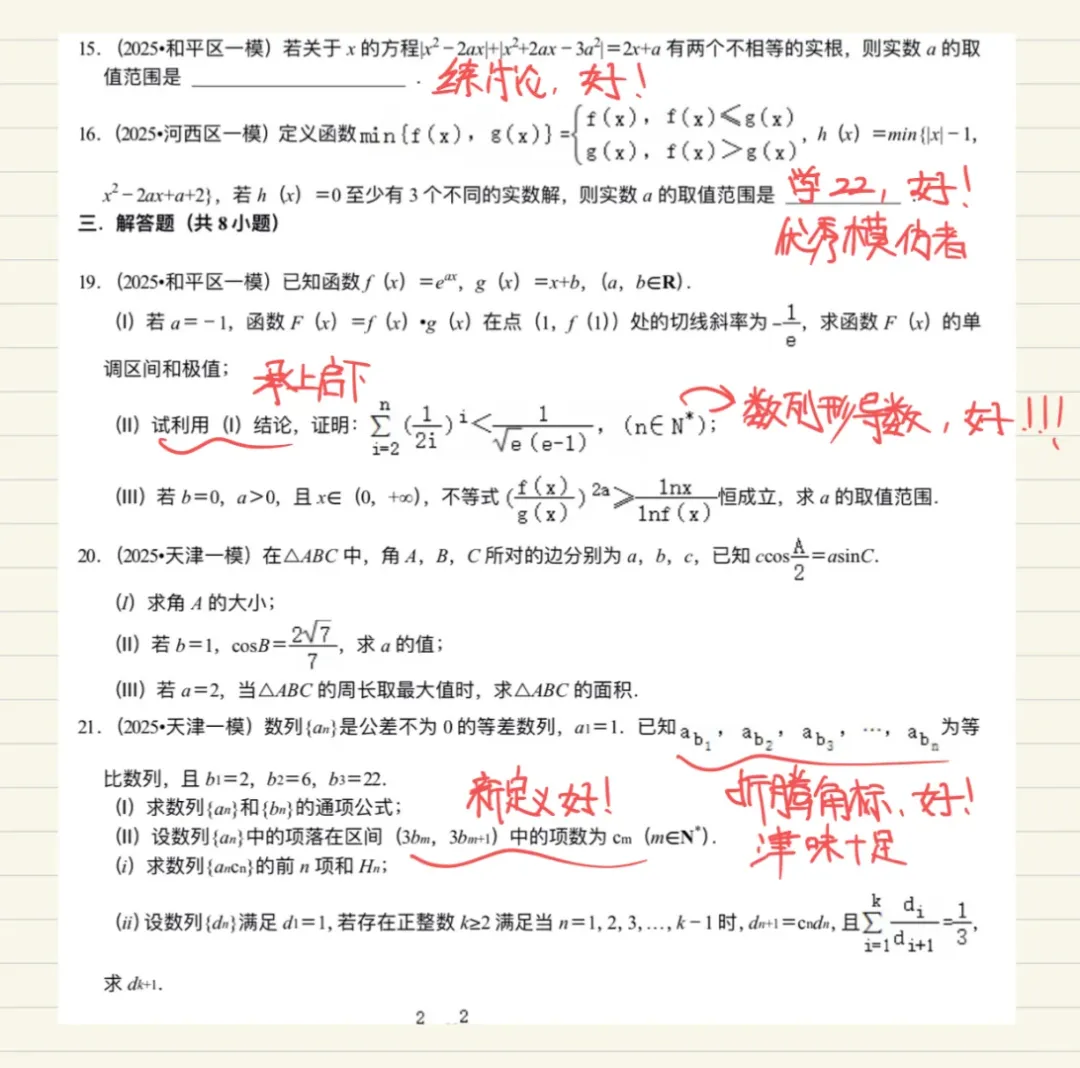 15.（2025•和平区一模）若关于 x 的方程|x²－2ax|+|x²+2ax－3a²|＝2x+a 有两个不相等的实根，则实数 a 的取
值范围是 ＿＿＿＿＿＿．
练讨论，好！
16.（2025•河西区一模）定义函数min{f(x)，g(x)}={f(x)，f(x)≤g(x) g(x)，f(x)＞g(x)，h（x）＝min{|x|－1，
x²－2ax+a+2}，若 h（x）＝0 至少有 3 个不同的实数解，则实数 a 的取值范围是 ＿＿＿＿．
学22，好！
优秀模仿者
三．解答题（共 8 小题）
19.（2025•和平区一模）已知函数 f（x）＝eᵃˣ，g（x）＝x+b，（a，b∈R）．
(Ⅰ）若 a＝－1，函数 F（x）＝f（x）•g（x）在点（1，f（1））处的切线斜率为 -1/e，求函数 F（x）的单
调区间和极值；
承上启下
(Ⅱ）试利用（Ⅰ）结论，证明：∑_{i=2}^{n}(1/2i)^i＜1/(√e(e-1))，（n∈N*）；
数列形导数，好!!!
(Ⅲ）若 b＝0，a＞0，且 x∈（0，+∞），不等式(f(x)/g(x))^{2a}≥lnx/lnf(x)恒成立，求 a 的取值范围．
20.（2025•天津一模）在△ABC 中，角 A，B，C 所对的边分别为 a，b，c，已知 ccos A/2＝asinC．
(I）求角 A 的大小；
(Ⅱ）若 b＝1，cosB＝2√7/7，求 a 的值；
(Ⅲ）若 a＝2，当△ABC 的周长取最大值时，求△ABC 的面积．
21.（2025•天津一模）数列{aₙ}是公差不为 0 的等差数列，a₁＝1．已知a_{b₁}，a_{b₂}，a_{b₃}，…，a_{bₙ}为等
比数列，且 b₁＝2，b₂＝6，b₃＝22．
新定义好！
折腾角标、好！
津味十足
(Ⅰ）求数列{aₙ}和{bₙ}的通项公式；
(Ⅱ）设数列{aₙ}中的项落在区间（3bₘ，3bₘ₊₁）中的项数为 cₘ（m∈N*）．
(i）求数列{aₙcₙ}的前 n 项和 Hₙ；
(ii) 设数列{dₙ}满足 d₁＝1，若存在正整数 k≥2 满足当 n＝1，2，3，…，k－1 时，dₙ₊₁＝cₙdₙ，且∑_{i=1}^{k} d_i/d_{i+1}=1/3，
求 dₖ₊₁．
2 2